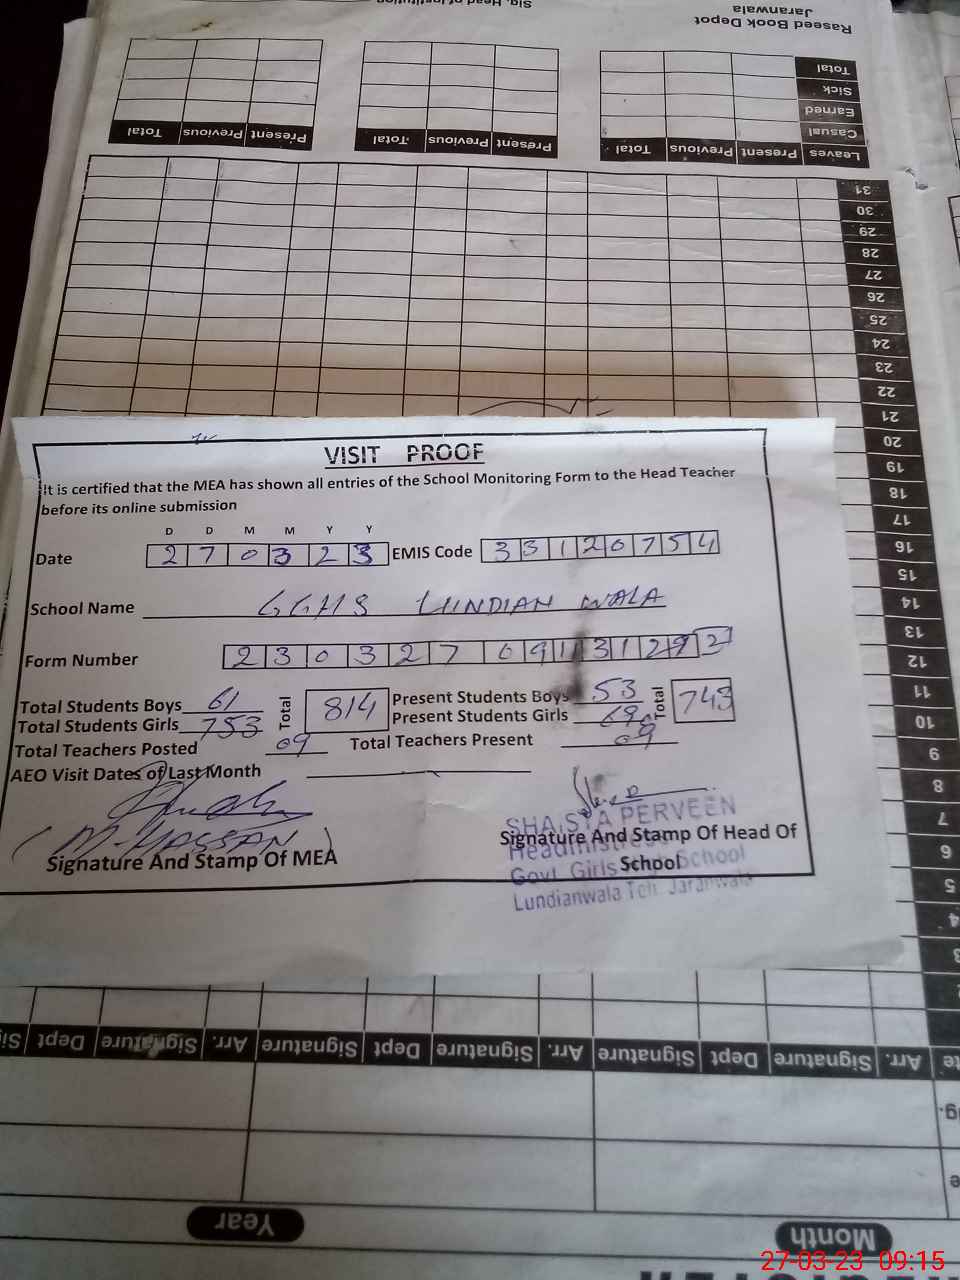 Sig. Head of Institution
Raseed Book Depot
Jaranwala
Total
Sick
Earned
Casual
Leaves Present Previous Total
Present Previous Total
Present Previous Total
31
30
29
28
27
26
25
24
23
22
21
20
19
18
17
16
15
14
13
12
11
10
9
8
7
6
5
4
3
VISIT PROOF
It is certified that the MEA has shown all entries of the School Monitoring Form to the Head Teacher
before its online submission
D D M M Y Y
Date 2 7 0 3 2 3 EMIS Code 3 3 1 2 0 7 5 4
School Name GGHS LUNDIAN WALA
Form Number 2 3 0 3 2 7 0 9 1 3 1 2 9 2
Total Students Boys 61 Total 814 Present Students Boys 53 Total 743
Total Students Girls 753 Present Students Girls 690
Total Teachers Posted 09 Total Teachers Present 09
AEO Visit Dates of Last Month
(M. HASSAN)
Signature And Stamp Of MEA
SHAISTA PERVEEN
Signature And Stamp Of Head Of
Headmistress
School
Govt. Girls School
Lundianwala Teh. Jaranwala
Arr. Signature Dept Signature Arr. Signature Dept Signature Arr. Signature Dept
Month Year
27-03-23 09:15